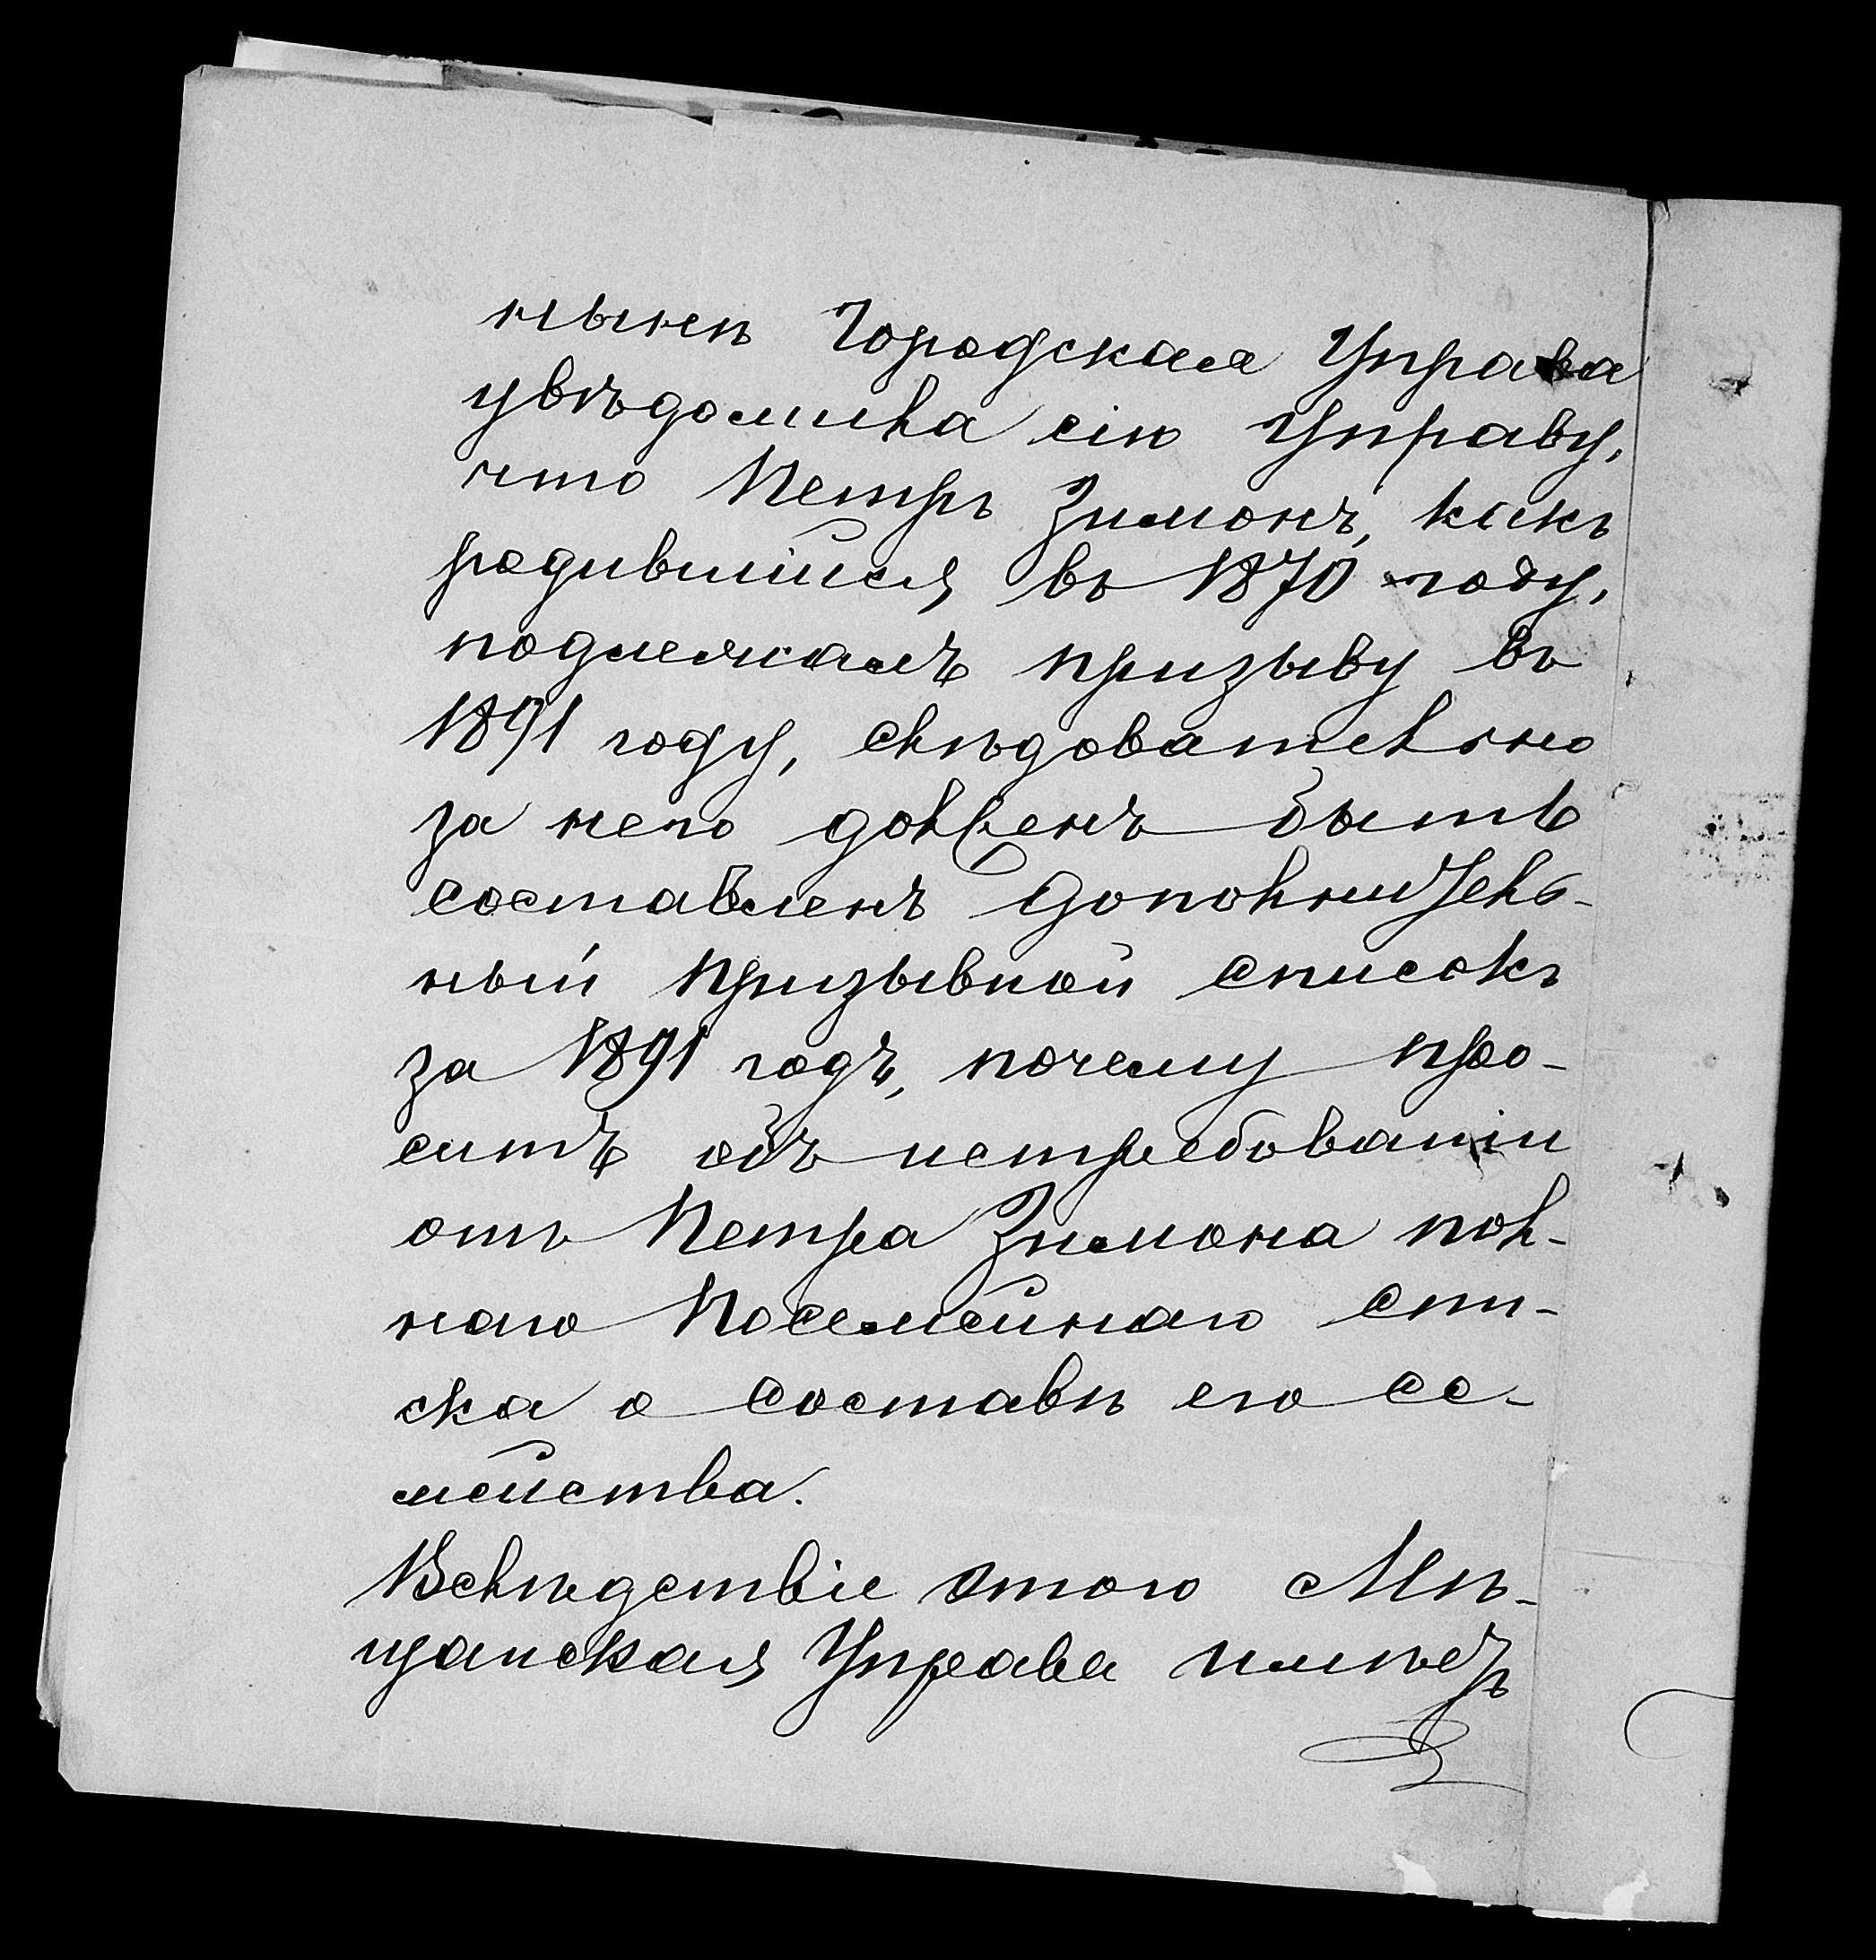 нынѣ Городская Управа
увѣдомила сію Управу,
что Петръ Зимонъ, какъ
родившійся въ 1870 году,
подлежалъ призыву въ
1891 году, слѣдовательно
за него долженъ быть
составленъ дополнитель-
ный призывной списокъ
за 1891 годъ, почему про-
ситъ объ истребованіи
отъ Петра Зимона пол-
наго посемейнаго спи-
ска о составѣ его се-
мейства.
Вслѣдствіе этого Мѣ-
щанская Управа имѣетъ